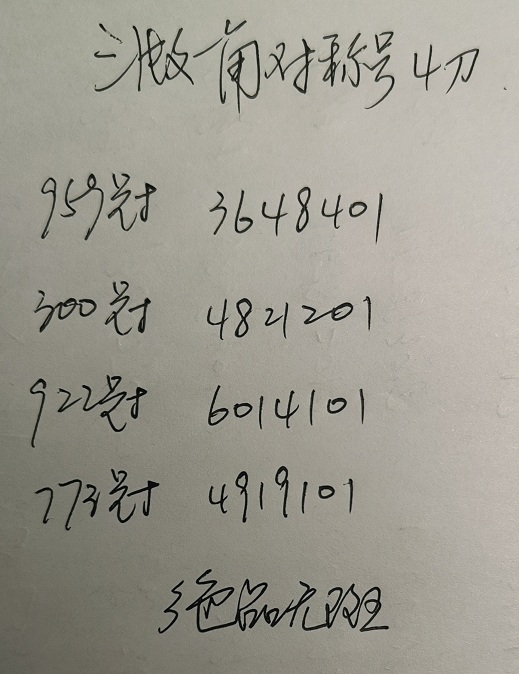 三版一角对称号4刀
959冠 3648401
300冠 4821201
922冠 6014101
773冠 4919101
绝品无斑